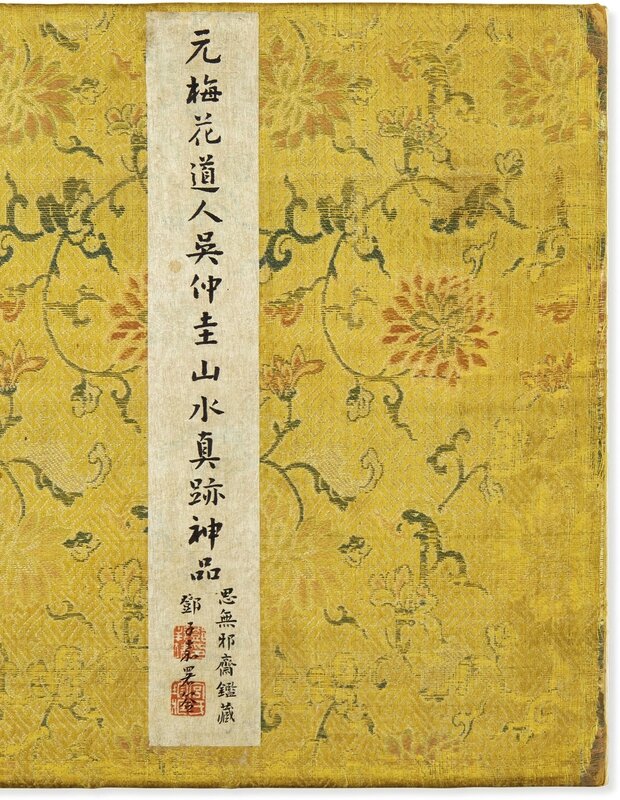 元梅花道人吳仲圭山水真跡神品
思無邪齋鑑藏
鄧子嘉署簽